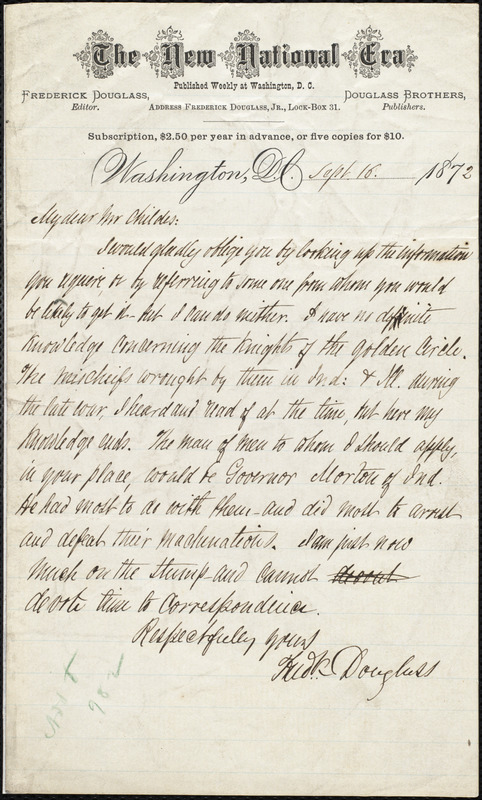 The New National Era
Published Weekly at Washington, D. C.
FREDERICK DOUGLASS,
Editor.
ADDRESS FREDERICK DOUGLASS, JR., LOCK-BOX 31.
DOUGLASS BROTHERS,
Publishers.
Subscription, $2.50 per year in advance, or five copies for $10.
Washington, D.C. Sept. 16. 1872
My dear Mr Childs:
I would gladly oblige you by looking up the information
you require, or by referring to some one from whom you would
be likely to get it - but I can do neither. I have no definite
knowledge concerning the Knights of the Golden Circle.
The mischiefs wrought by them in Ind: & Ill. during
the late war, I heard and read of at the time, but here my
knowledge ends. The man of men to whom I should apply,
in your place, would be Governor Morton of Ind.
He had most to do with them - and did most to arrest
and defeat their machinations. I am just now
much on the stump and cannot
devote time to correspondence.
Respectfully yours
Fredk. Douglass